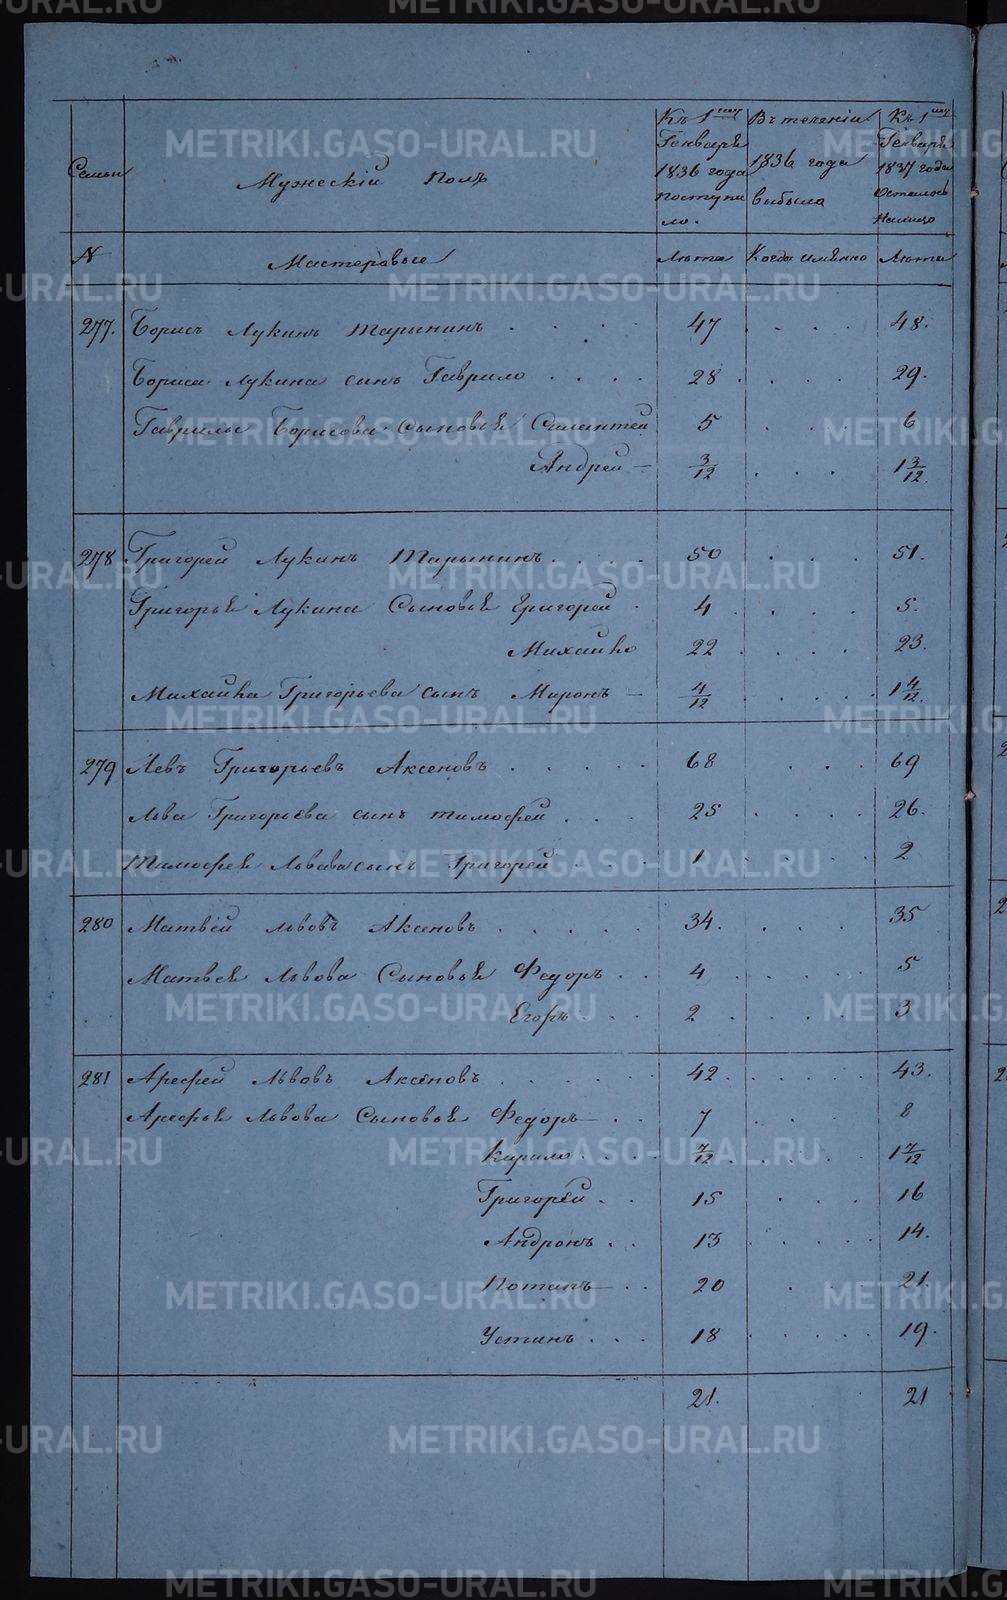 Семьи
Мужескій полъ
Къ 1му Генваря 1836 года поступило.
В теченіи 1836 года выбыла
Къ 1му Генваря 1837 года Осталось Налицо
N Мастеровые Лѣта Когда имянно Лѣта
277. Борисъ Лукинъ 47 48.
Бориса Лукина сынъ Гаврило 28 29.
Гаврилы Борисова Сыновья 5 6
Андрей 3/12 1 3/12.
278 Григорей Лукинъ 50 51.
Григорья Лукина Сыновья Григорей 4 5.
Михайло 22 23.
Михайла Григорьева сынъ Миронъ 4/12 1 4/12.
279 Левъ Григорьевъ Аксеновъ 68 69
Льва Григорьева сынъ тимофей 25 26.
Тимофея Львова сынъ Григорей 1 2
280 Матвѣй львовъ Аксеновъ 34. 35
Матвея Львова Сыновья Федоръ 4 5
Егоръ 2 3
281 Арефей Львовъ Аксеновъ 42 43.
Арефья Львова Сыновья Федоръ 7 8
Кирило 7/12 1 7/12
Григорей 15 16
Андронъ 13 14.
Потапъ 20 21.
Устинъ 18 19.
21. 21
METRIKI.GASO-URAL.RU